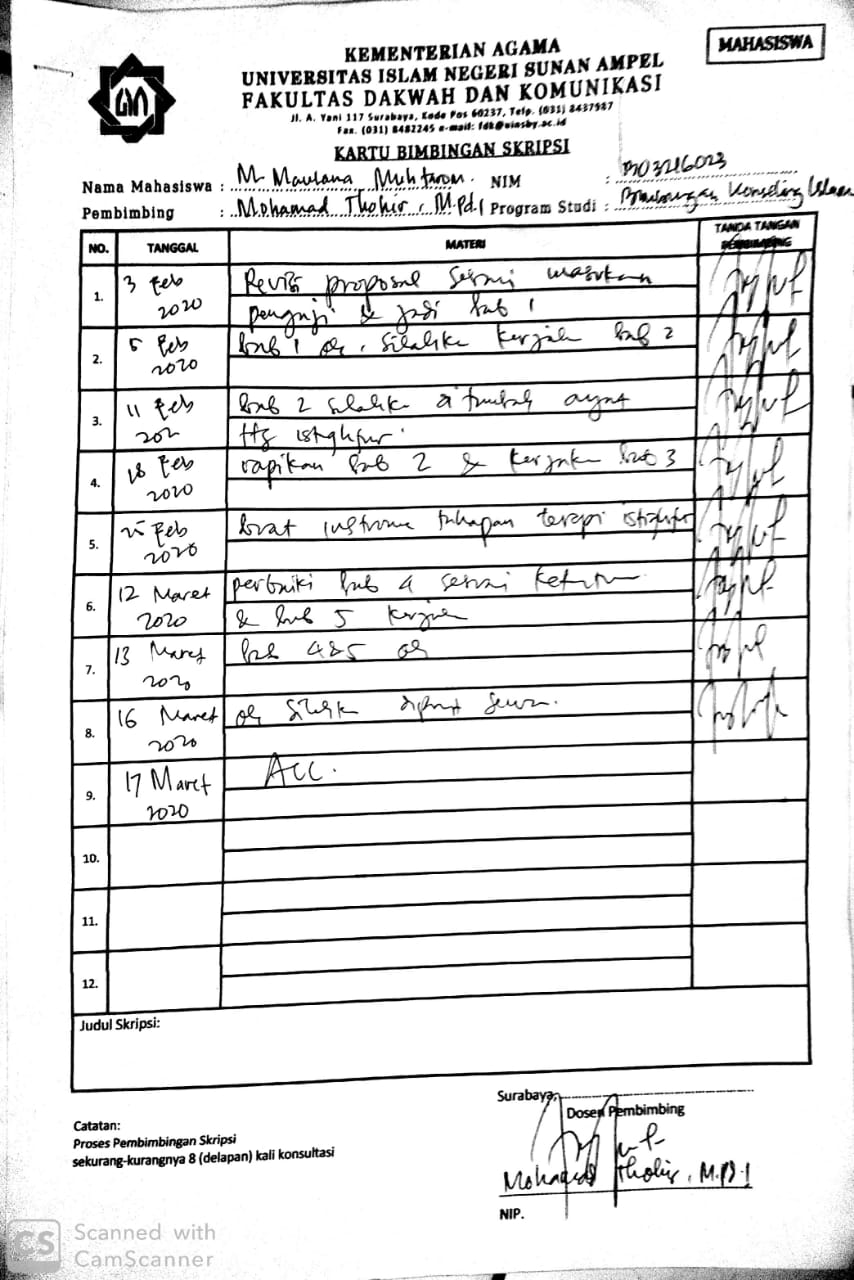 MAHASISWA
KEMENTERIAN AGAMA
UNIVERSITAS ISLAM NEGERI SUNAN AMPEL
FAKULTAS DAKWAH DAN KOMUNIKASI
Jl. A. Yani 117 Surabaya, Kode Pos 60237, Telp. (031) 8437987
Fax. (031) 8482245 e-mail: fdk@uinsby.ac.id
KARTU BIMBINGAN SKRIPSI
Nama Mahasiswa : M. Maulana Muhtarom. NIM : B03216023
Pembimbing : Mohamad Thohir, M.Pd.I Program Studi : Bimbingan Konseling Islam
NO. TANGGAL MATERI TANDA TANGAN PEMBIMBING
1. 3 Feb 2020 Revisi proposal sesuai masukan
penguji & jadi bab 1
2. 5 Feb 2020 bab 1 ok, silahke kerjake bab 2
3. 11 Feb 202 bab 2 silahke ditambah ayat
ttg istighfar.
4. 18 Feb 2020 rapikan bab 2 & kerjake bab 3
5. 25 Feb 2020 buat instrume tahapan terapi istighfar
6. 12 Maret 2020 perbaiki bab 4 sesuai
& bab 5
7. 13 Maret 2020 bab 4&5 ok
8. 16 Maret 2020 ok
9. 17 Maret 2020 Acc.
10.
11.
12.
Judul Skripsi:
Surabaya,
Dosen Pembimbing
Catatan:
Proses Pembimbingan Skripsi
sekurang-kurangnya 8 (delapan) kali konsultasi
Mohamad Thohir, M.Pd.I
NIP.
CS Scanned with
CamScanner